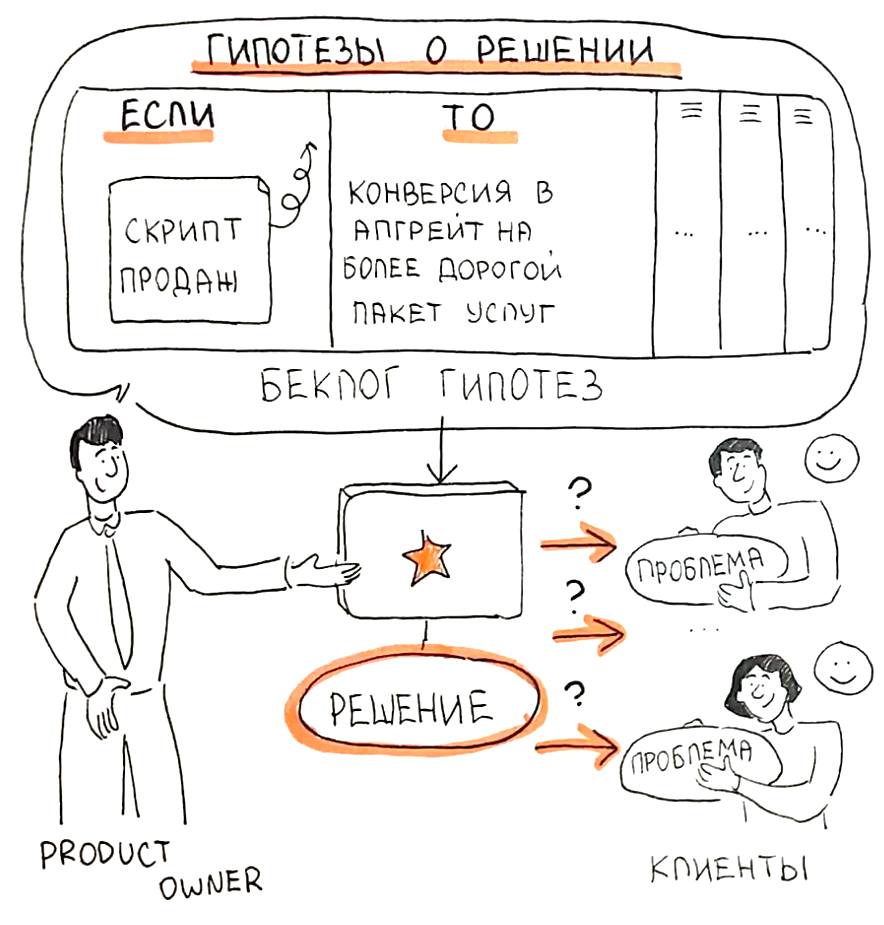 ГИПОТЕЗЫ О РЕШЕНИИ
ЕСЛИ
ТО
СКРИПТ
ПРОДАЖ
КОНВЕРСИЯ В
АПГРЕЙТ НА
БОЛЕЕ ДОРОГОЙ
ПАКЕТ УСЛУГ
...
...
...
БЕКЛОГ ГИПОТЕЗ
?
ПРОБЛЕМА
?
...
РЕШЕНИЕ
?
ПРОБЛЕМА
PRODUCT
OWNER
КЛИЕНТЫ